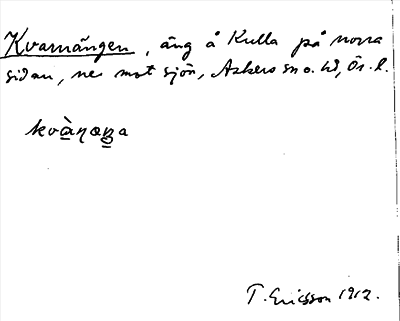 Kvarnängen, äng å Kulla på norra
sidan, ner mot sjön, Askers sn o. hd, Ör. l.
kvà̲ɳæŋ̲a
T. Ericsson 1912.